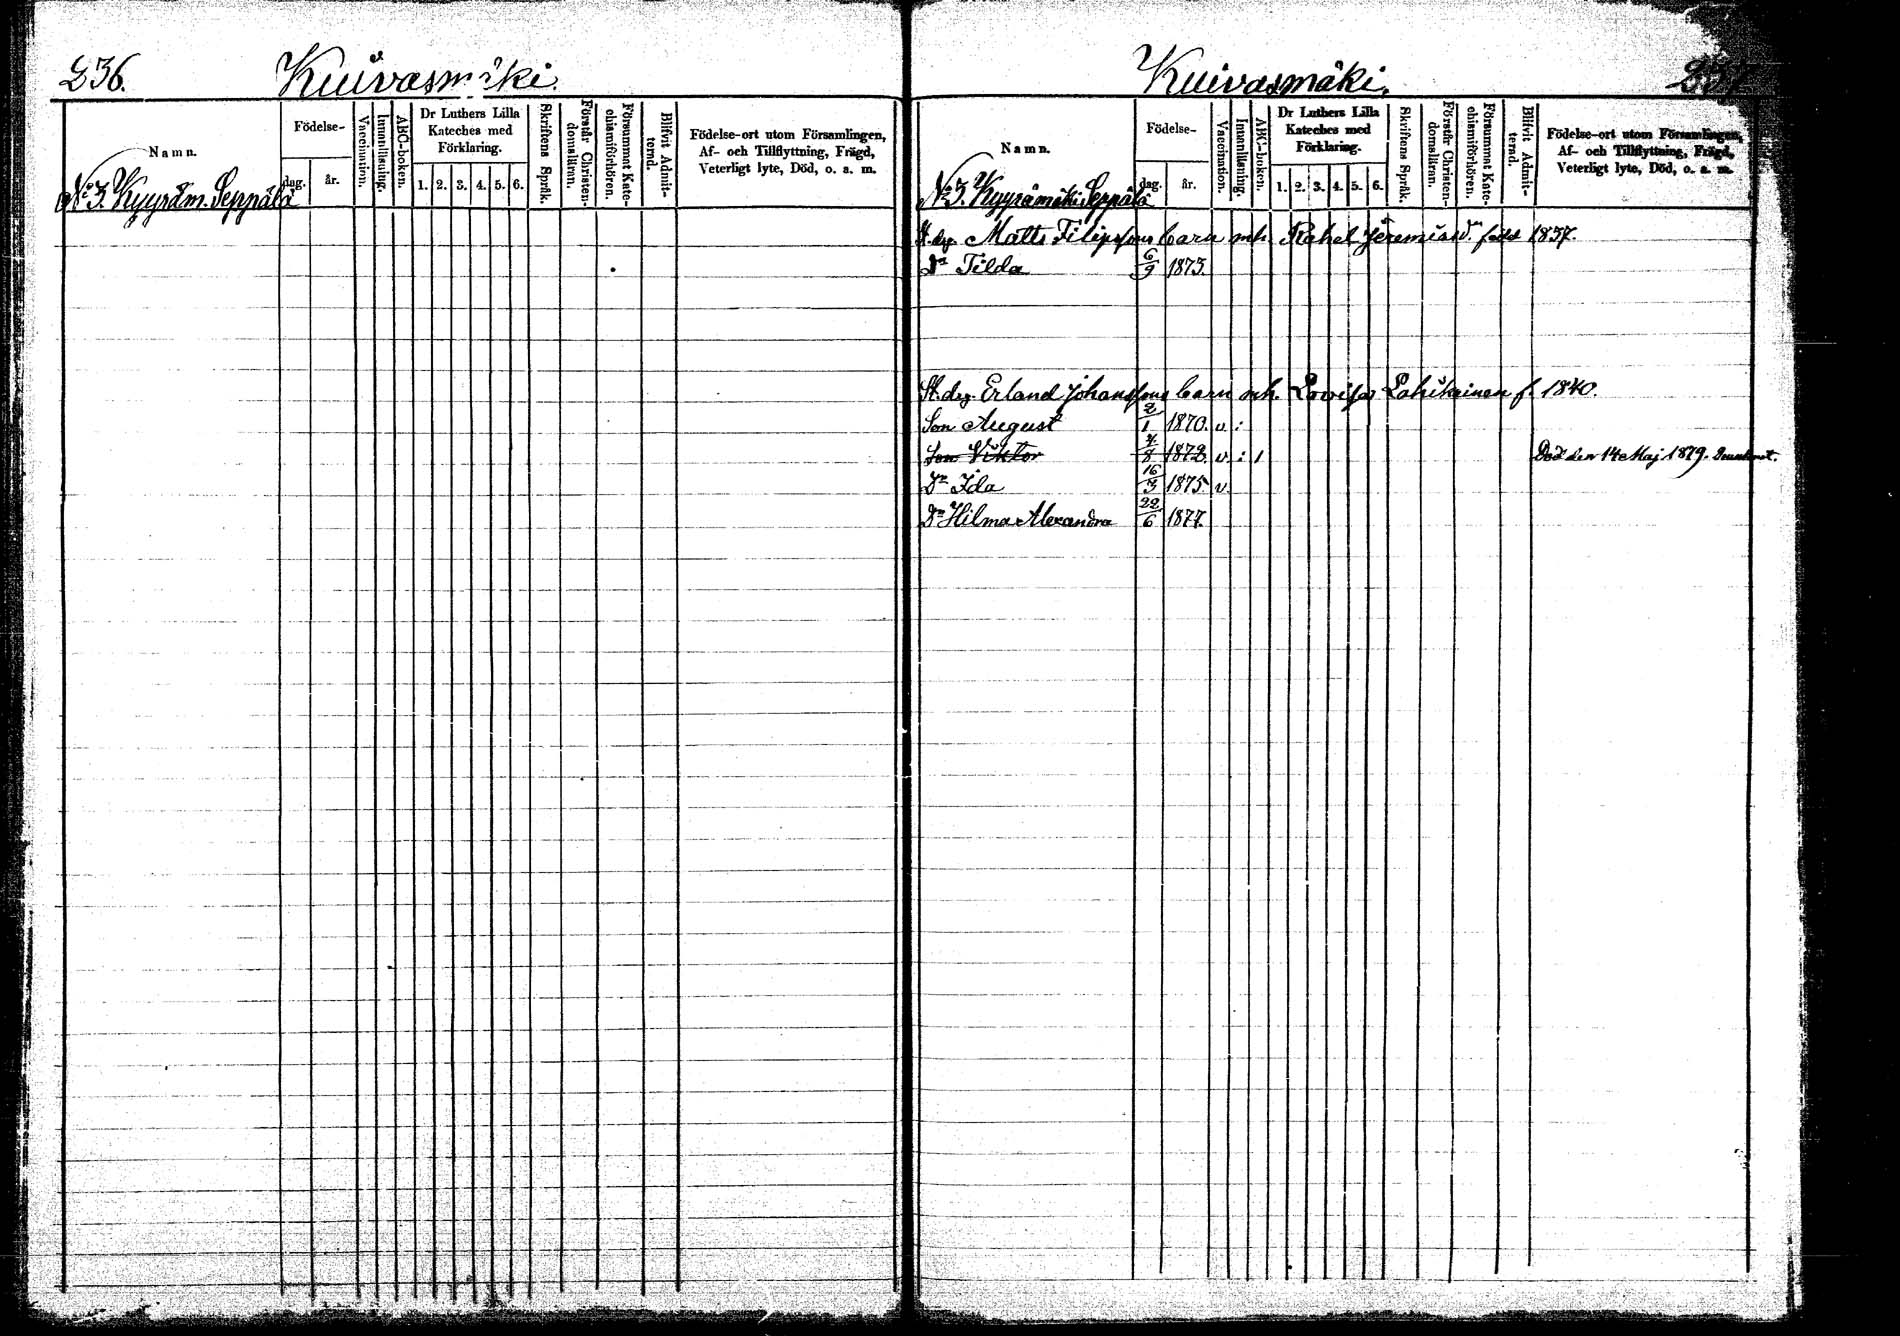 236. Kuivasmäki.
Namn.
Födelse-
dag. år.
Vaccination.
Innanläsning.
ABC-boken.
Dr Luthers Lilla
Kateches med
Förklaring.
1. 2. 3. 4. 5. 6.
Skriftens Språk.
Förstår Christen-
domsläran.
Försummat Kate-
chismiförhören.
Blifvit Admit-
terad.
Födelse-ort utom Församlingen,
Af- och Tillflyttning, Frägd,
Veterligt lyte, Död, o. s. m.
No 3. Kyyräm. Seppälä
Kuivasmäki.
Namn.
Födelse-
dag. år.
Vaccination.
Innanläsning.
ABC-boken.
Dr Luthers Lilla
Kateches med
Förklaring.
1. 2. 3. 4. 5. 6.
Skriftens Språk.
Förstår Christen-
domsläran.
Försummat Kate-
chismiförhören.
Blifvit Admit-
terad.
Födelse-ort utom Församlingen,
Af- och Tillflyttning, Frägd,
Veterligt lyte, Död, o. s. m.
No 3. Kyyrämäki Seppälä
Matts Filipssons barn mh. Rahel Jeremiasdr född 1837.
Dr Tilda 6/9 1873.
St. drg. Erland Johanssons barn mh. Lovisa Lahikainen f. 1840.
Son August 2/1 1870. v :
Son Viktor 4/8 1872. v : 1 Död den 14 Maj 1879.
Dr Ida 16/3 1875 v
Dr Hilma Alexandra 22/6 1877.